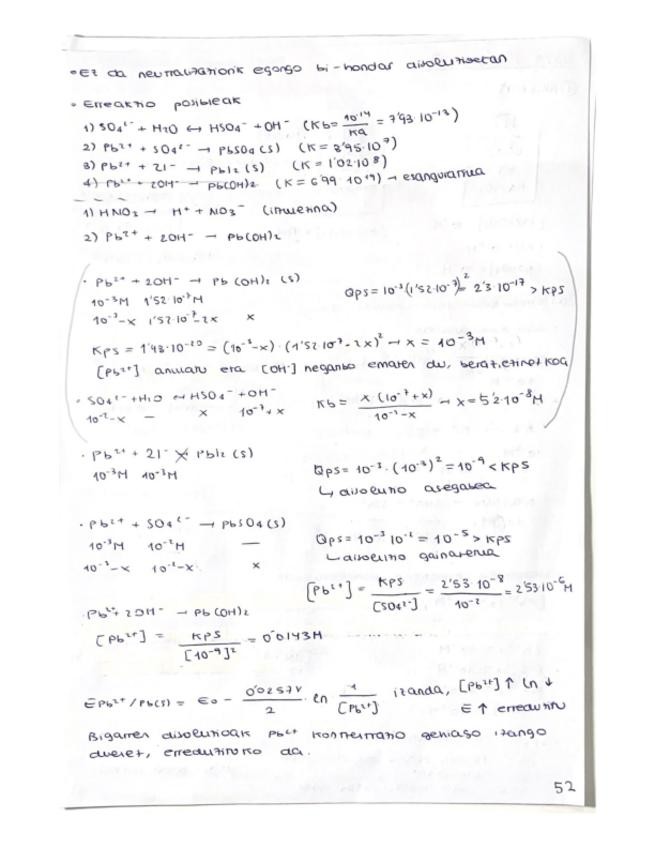 • Ez da neutralizaziorik egongo bi-hondar disoluzioetan
• Erreakzio posibleak
1) SO4²⁻ + H2O ↔ HSO4⁻ + OH⁻ (Kb = 10⁻¹⁴/Ka = 7'93·10⁻¹³)
2) Pb²⁺ + SO4²⁻ → PbSO4 (s) (K = 3'95·10⁷)
3) Pb²⁺ + 2I⁻ → PbI2 (s) (K = 1'02·10⁸)
4) Pb²⁺ + 2OH⁻ → Pb(OH)2 (K = 6'99·10¹⁹) → esanguratsua
1) HNO3 → H⁺ + NO3⁻
2) Pb²⁺ + 2OH⁻ → Pb(OH)2
· Pb²⁺ + 2OH⁻ → Pb(OH)2 (s) Qps = 10⁻³(1'52·10⁻⁷)² = 2'3·10⁻¹⁷ > Kps
10⁻³M 1'52·10⁻⁷M
10⁻³-x 1'52·10⁻⁷-2x x
Kps = 1'43·10⁻²⁰ = (10⁻³-x)·(1'52·10⁻⁷-2x)² → x = 10⁻³M
[Pb²⁺] eta [OH⁻] ematen du, beraz
· SO4²⁻ + H2O ↔ HSO4⁻ + OH⁻ Kb = x·(10⁻⁷+x)/10⁻²-x → x = 5'2·10⁻⁸M
10⁻²-x — x 10⁻⁷+x
· Pb²⁺ + 2I⁻ ↛ PbI2 (s)
10⁻³M 10⁻³M Qps = 10⁻³·(10⁻³)² = 10⁻⁹ < Kps
↳ disoluzio asegabea
· Pb²⁺ + SO4²⁻ → PbSO4 (s)
10⁻³M 10⁻²M — Qps = 10⁻³10⁻² = 10⁻⁵ > Kps
10⁻³-x 10⁻²-x x ↳ disoluzio gainasea
[Pb²⁺] = Kps/[SO4²⁻] = 2'53·10⁻⁸/10⁻² = 2'53·10⁻⁶M
· Pb²⁺ + 2OH⁻ → Pb(OH)2
[Pb²⁺] = Kps/[10⁻⁹]² = 0'0143M
E Pb²⁺/Pb(s) = E0 - 0'0257V/2 · ln 1/[Pb²⁺] izanda, [Pb²⁺] ↑ ln ↓
E ↑
Bigarren disoluzioak Pb²⁺ kontzentrazio izango
duenez, da.
52